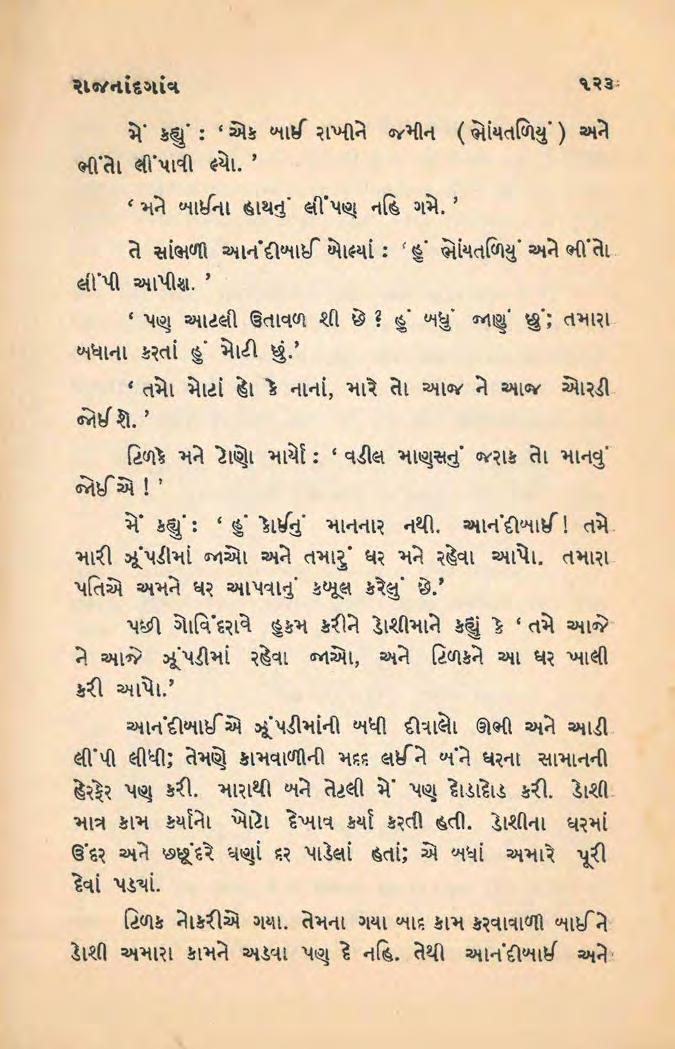 રાજનાંદગાંવ ૧૨૩
મેં કહ્યું : ‘એક બાઈ રાખીને જમીન ( ભોંયતળિયું ) અને
ભીંતો લીંપાવી લ્યો. ’
‘ મને બાઈના હાથનું લીંપણ નહિ ગમે. ’
તે સાંભળી આનંદીબાઈ બોલ્યાં : ‘હું ભોંયતળિયું અને ભીંતો
લીંપી આપીશ. ’
‘ પણ આટલી ઉતાવળ શી છે ? હું બધું જાણું છું; તમારા
બધાના કરતાં હું મોટી છું.’
‘ તમો મોટાં હો કે નાનાં, મારે તો આજ ને આજ ઓરડી
જોઈશે. ’
ટિળકે મને ટોણો માર્યો : ‘ વડીલ માણસનું જરાક તો માનવું
જોઈએ ! ’
મેં કહ્યું : ‘ હું કોઈનું માનનાર નથી. આનંદીબાઈ ! તમે
મારી ઝૂંપડીમાં જાઓ અને તમારું ઘર મને રહેવા આપો. તમારા
પતિએ અમને ઘર આપવાનું કબૂલ કરેલું છે.’
પછી ગોવિંદરાવે હુકમ કરીને ડોશીમાને કહ્યું કે ‘ તમે આજે
ને આજે ઝૂંપડીમાં રહેવા જાઓ, અને ટિળકને આ ઘર ખાલી
કરી આપો.’
આનંદીબાઈએ ઝૂંપડીમાંની બધી દીવાલો ઊભી અને આડી
લીંપી લીધી; તેમણે કામવાળીની મદદ લઈને બંને ઘરના સામાનની
હેરફેર પણ કરી. મારાથી બને તેટલી મેં પણ દોડાદોડ કરી. ડોશી
માત્ર કામ કર્યાનો ખોટો દેખાવ કર્યા કરતી હતી. ડોશીના ઘરમાં
ઉંદર અને છછૂંદરે ઘણાં દર પાડેલાં હતાં; એ બધાં અમારે પૂરી
દેવાં પડ્યાં.
ટિળક નોકરીએ ગયા. તેમના ગયા બાદ કામ કરવાવાળી બાઈને
ડોશી અમારા કામને અડવા પણ દે નહિ. તેથી આનંદીબાઈ અને